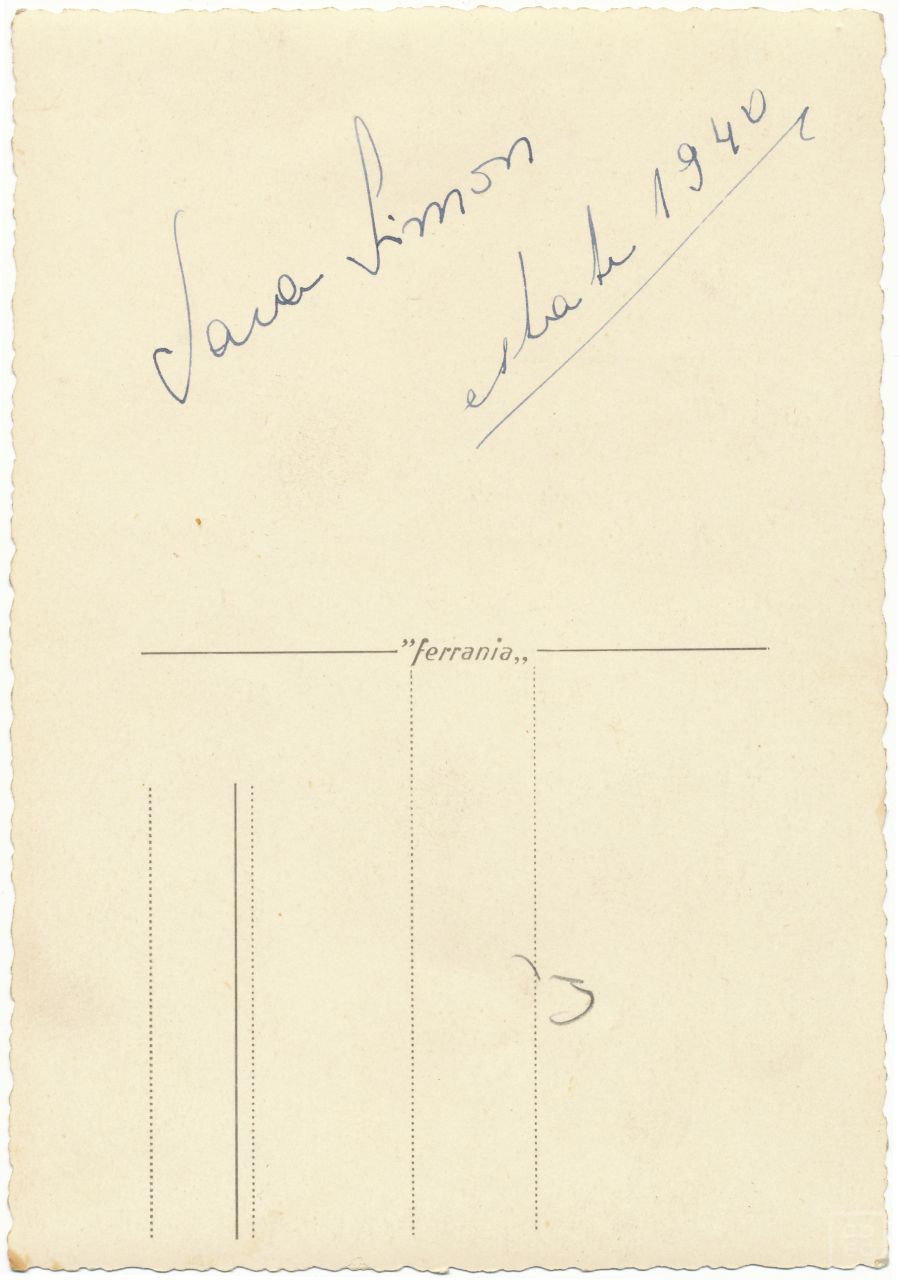 Sara Simon
estate 1940
"ferrania„